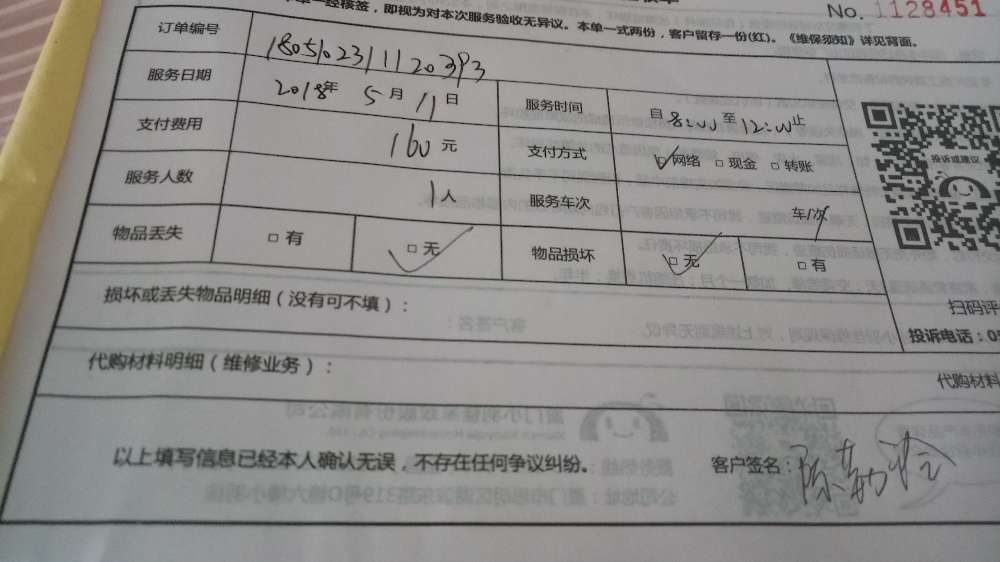 No. 1128451
单一经核签，即视为对本次服务验收无异议。本单一式两份，客户留存一份(红)。《维保须知》详见背面。
订单编号 180510231120393
服务日期 2018年 5月 11日 服务时间 自8:00至12:00止
支付费用 160元 支付方式 ☑网络 □现金 □转账
服务人数 1人 服务车次 车/次
物品丢失 □有 □无 ✓ 物品损坏 □无 ✓ □有
投诉或建议
损坏或丢失物品明细（没有可不填）：
扫码评
投诉电话：0
代购材料明细（维修业务）：
代购材料
以上填写信息已经本人确认无误，不存在任何争议纠纷。 客户签名：陈